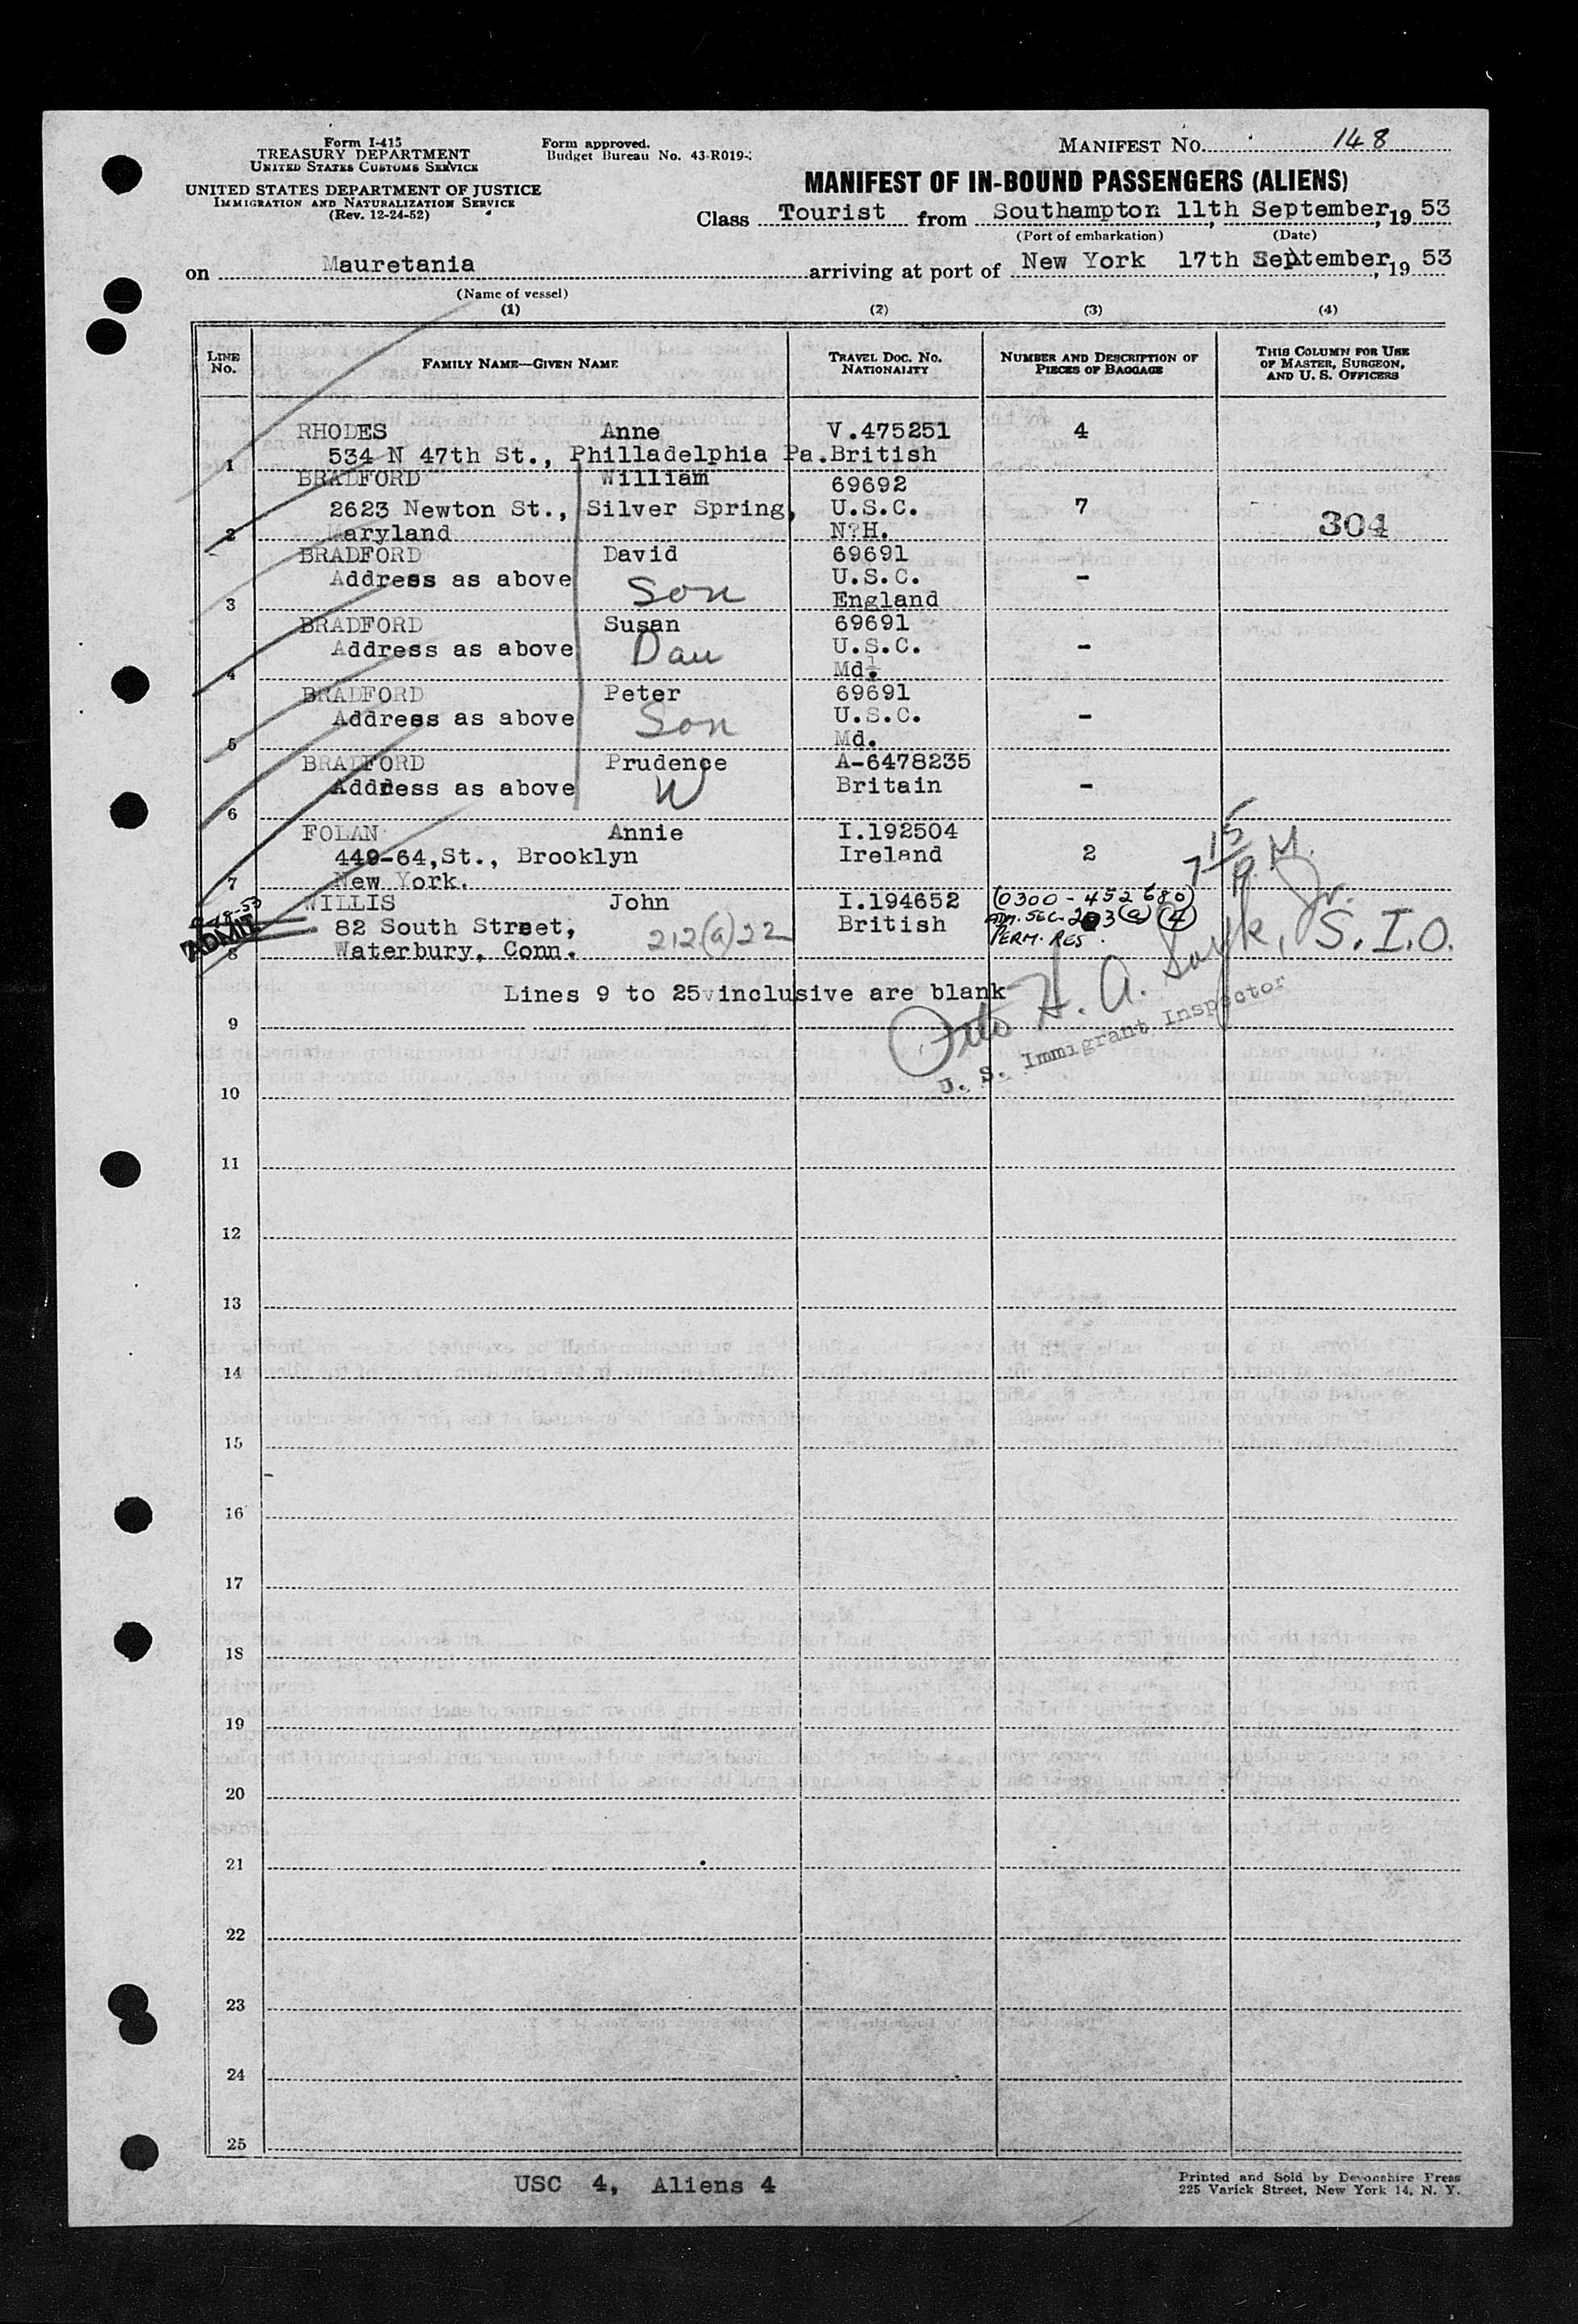 Form I-415
TREASURY DEPARTMENT
UNITED STATES CUSTOMS SERVICE
UNITED STATES DEPARTMENT OF JUSTICE
IMMIGRATION AND NATURALIZATION SERVICE
(Rev. 12-24-52)
Form approved.
Budget Bureau No. 43-R019-
MANIFEST NO. 148
MANIFEST OF IN-BOUND PASSENGERS (ALIENS)
Class Tourist from Southampton 11th September, 19 53
(Port of embarkation) (Date)
on Mauretania arriving at port of New York 17th September, 19 53
(Name of vessel)
(1) (2) (3) (4)
LINE No. FAMILY NAME—GIVEN NAME TRAVEL DOC. NO. NATIONALITY NUMBER AND DESCRIPTION OF PIECES OF BAGGAGE THIS COLUMN FOR USE OF MASTER, SURGEON, AND U. S. OFFICERS
RHODES Anne V.475251 4
1 534 N 47th St., Philladelphia Pa. British
BRADFORD William 69692
2623 Newton St., Silver Spring, U.S.C. 7
2 Maryland N?H. 304
BRADFORD David 69691
Address as above Son U.S.C. -
3 England
BRADFORD Susan 69691
Address as above Dau U.S.C. -
4 Md.
BRADFORD Peter 69691
Address as above Son U.S.C. -
5 Md.
BRADFORD Prudence A-6478235
Address as above W Britain -
6
FOLAN Annie I.192504
449-64,St., Brooklyn Ireland 2 7 15 P.M.
7 New York.
WILLIS John I.194652 (0300-452680)
ADMIT 82 South Street, British ADM. SEC. 203(a)(4)
8 Waterbury, Conn. 212(a)22 PERM. RES.
Lines 9 to 25 inclusive are blank
Otto H. A. Jr. S.I.O.
U. S. Immigrant Inspector
9
10
11
12
13
14
15
16
17
18
19
20
21
22
23
24
25
USC 4, Aliens 4
Printed and Sold by Devonshire Press
225 Varick Street, New York 14, N. Y.